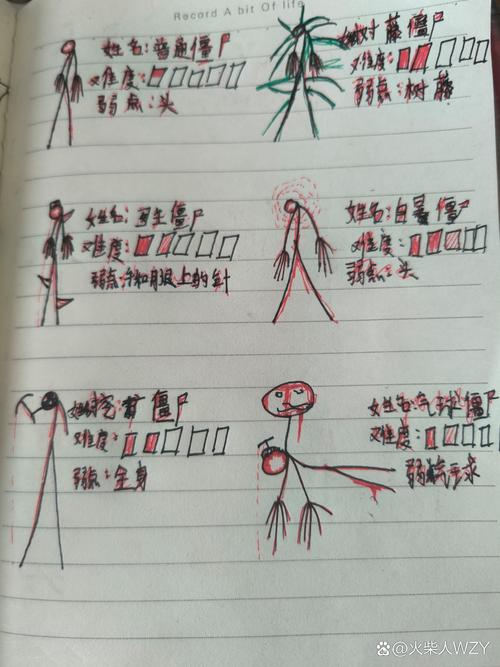 Record A bit Of life
姓名:普通僵尸
难度:
弱点:头
姓名:树藤僵尸
难度:
弱点:树藤
姓名:医生僵尸
难度:
弱点:手和腿上的针
姓名:自暴僵尸
难度:
弱点:头
僵尸
难度:
弱点:全身
姓名:气球僵尸
难度:
弱点:气球
@火柴人WZY